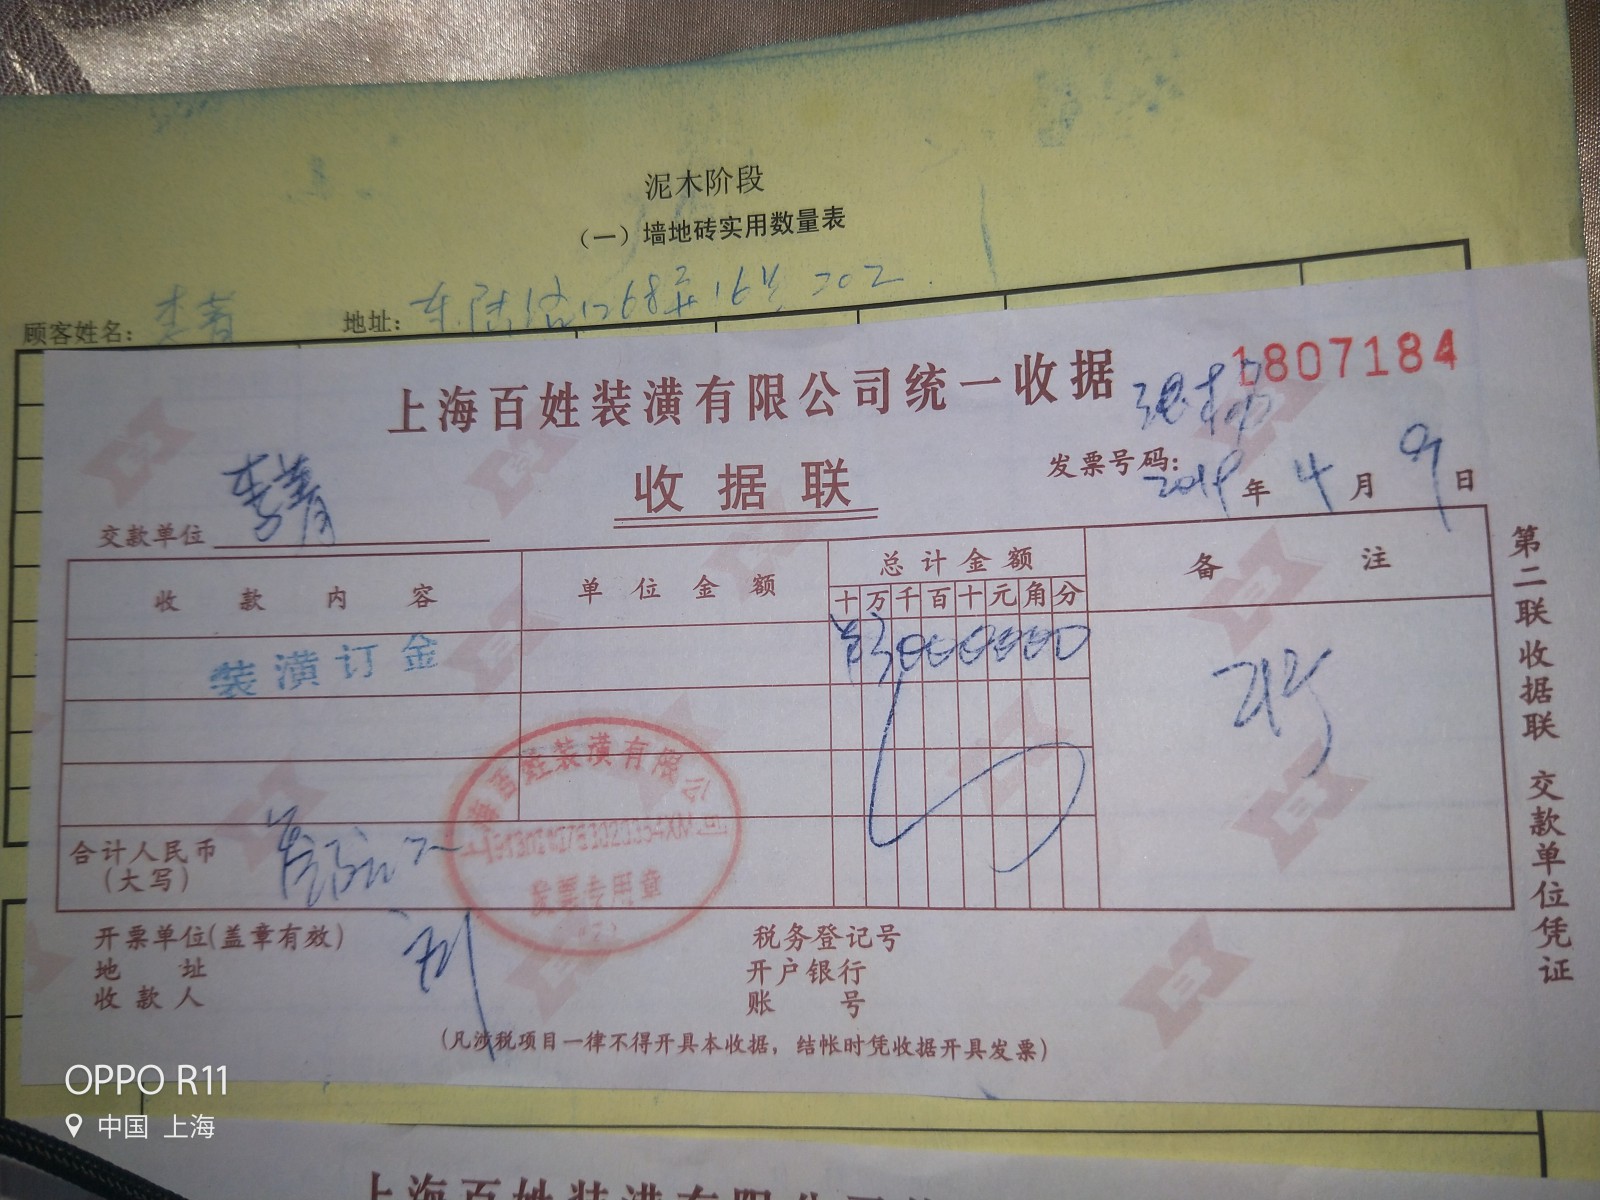 泥木阶段
（一）墙地砖实用数量表
顾客姓名： 李菁 地址： 1268弄16号 202
上海百姓装潢有限公司统一收据
1807184
张杨
收据联
发票号码：
2019年4月9日
交款单位 李菁
收款内容 单位金额 总计金额 备注
十万千百十元角分
装潢订金
合计人民币
（大写）
上海百姓装潢有限公司
发票专用章
开票单位（盖章有效） 税务登记号
地址 开户银行
收款人 账号
（凡涉税项目一律不得开具本收据，结帐时凭收据开具发票）
第二联收据联 交款单位凭证
OPPO R11
中国 上海
上海百姓装潢有限公司